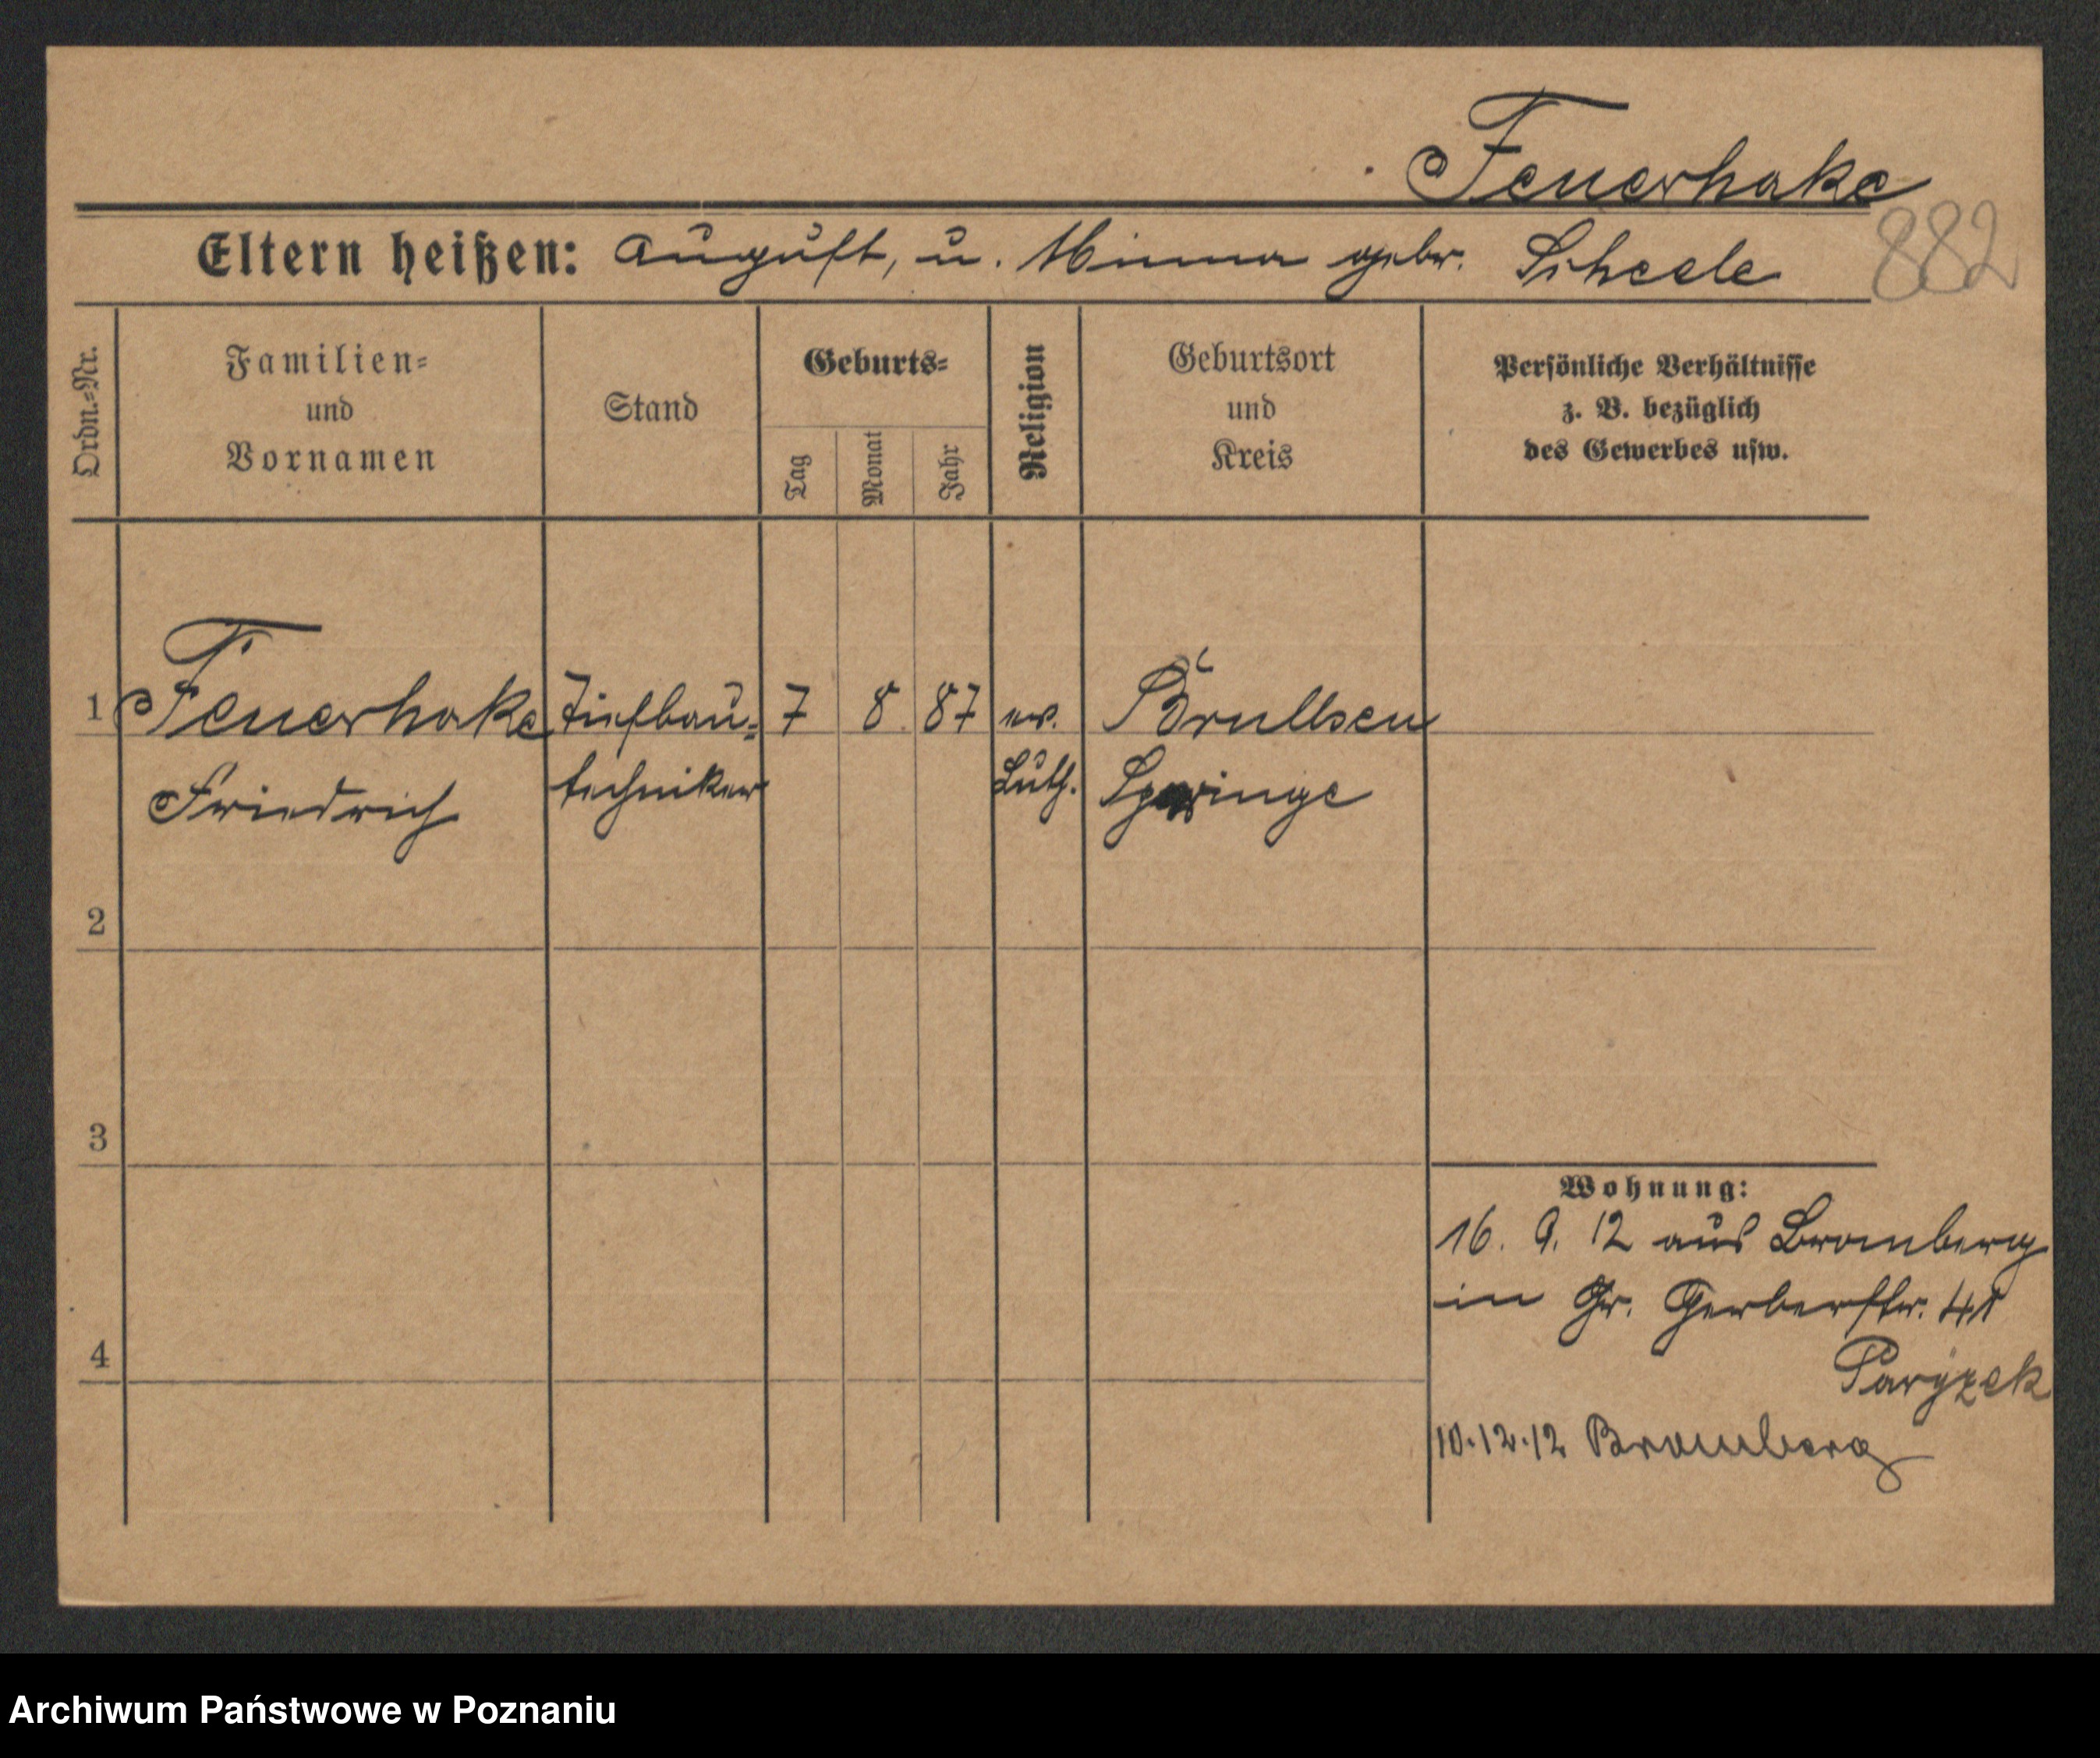 Feuerhake
Eltern heißen: August, u. Minna gebr. Scheele
882
Ordn.-Nr.
Familien-
und
Vornamen
Stand
Geburts-
Tag
Monat
Jahr
Religion
Geburtsort
und
Kreis
Persönliche Verhältnisse
z. B. bezüglich
des Gewerbes usw.
1 Feuerhake Tiefbau- 7 8 87 ev. Brullsen
Friedrich techniker Luth. Springe
2
3
Wohnung:
16. 9. 12 aus Bromberg
in Gr. Gerberstr. 41
4
Paryzek
10.12.12 Bromberg
Archiwum Państwowe w Poznaniu